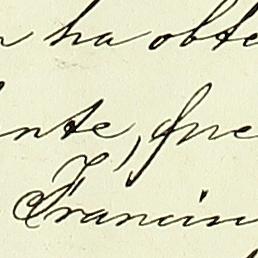 ha obte
nte, que
Francis